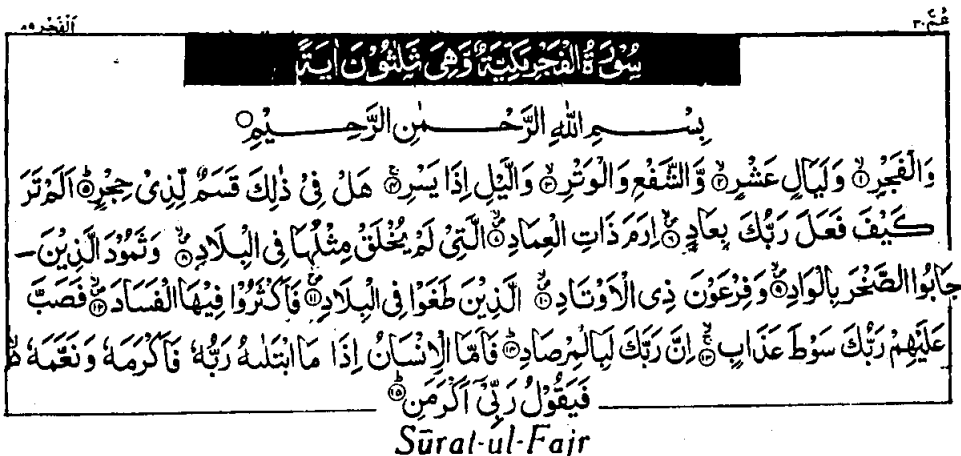 عم ٣٠ الفجر ٨٩
سُوْرَةُ الْفَجْرِ مَكِّيَّةٌ وَّهِىَ ثَلٰثُوْنَ اٰيَةً
بِسْمِ اللهِ الرَّحْمٰنِ الرَّحِيْمِ
وَالْفَجْرِ ۙ١ وَلَيَالٍ عَشْرٍ ۙ٢ وَّالشَّفْعِ وَالْوَتْرِ ۙ٣ وَالَّيْلِ اِذَا يَسْرِ ۚ٤ هَلْ فِىْ ذٰلِكَ قَسَمٌ لِّذِىْ حِجْرٍ ؕ٥ اَلَمْ تَرَ
كَيْفَ فَعَلَ رَبُّكَ بِعَادٍ ۙ٦ اِرَمَ ذَاتِ الْعِمَادِ ۙ٧ الَّتِىْ لَمْ يُخْلَقْ مِثْلُهَا فِى الْبِلَادِ ۙ٨ وَثَمُوْدَ الَّذِيْنَ
جَابُوا الصَّخْرَ بِالْوَادِ ۙ٩ وَفِرْعَوْنَ ذِى الْاَوْتَادِ ۙ١٠ الَّذِيْنَ طَغَوْا فِى الْبِلَادِ ۙ١١ فَاَكْثَرُوْا فِيْهَا الْفَسَادَ ۙ١٢ فَصَبَّ
عَلَيْهِمْ رَبُّكَ سَوْطَ عَذَابٍ ۚ١٣ اِنَّ رَبَّكَ لَبِالْمِرْصَادِ ؕ١٤ فَاَمَّا الْاِنْسَانُ اِذَا مَا ابْتَلٰىهُ رَبُّهٗ فَاَكْرَمَهٗ وَنَعَّمَهٗ ۙ
فَيَقُوْلُ رَبِّىْٓ اَكْرَمَنِ ؕ١٥
Sūrat-ul-Fajr